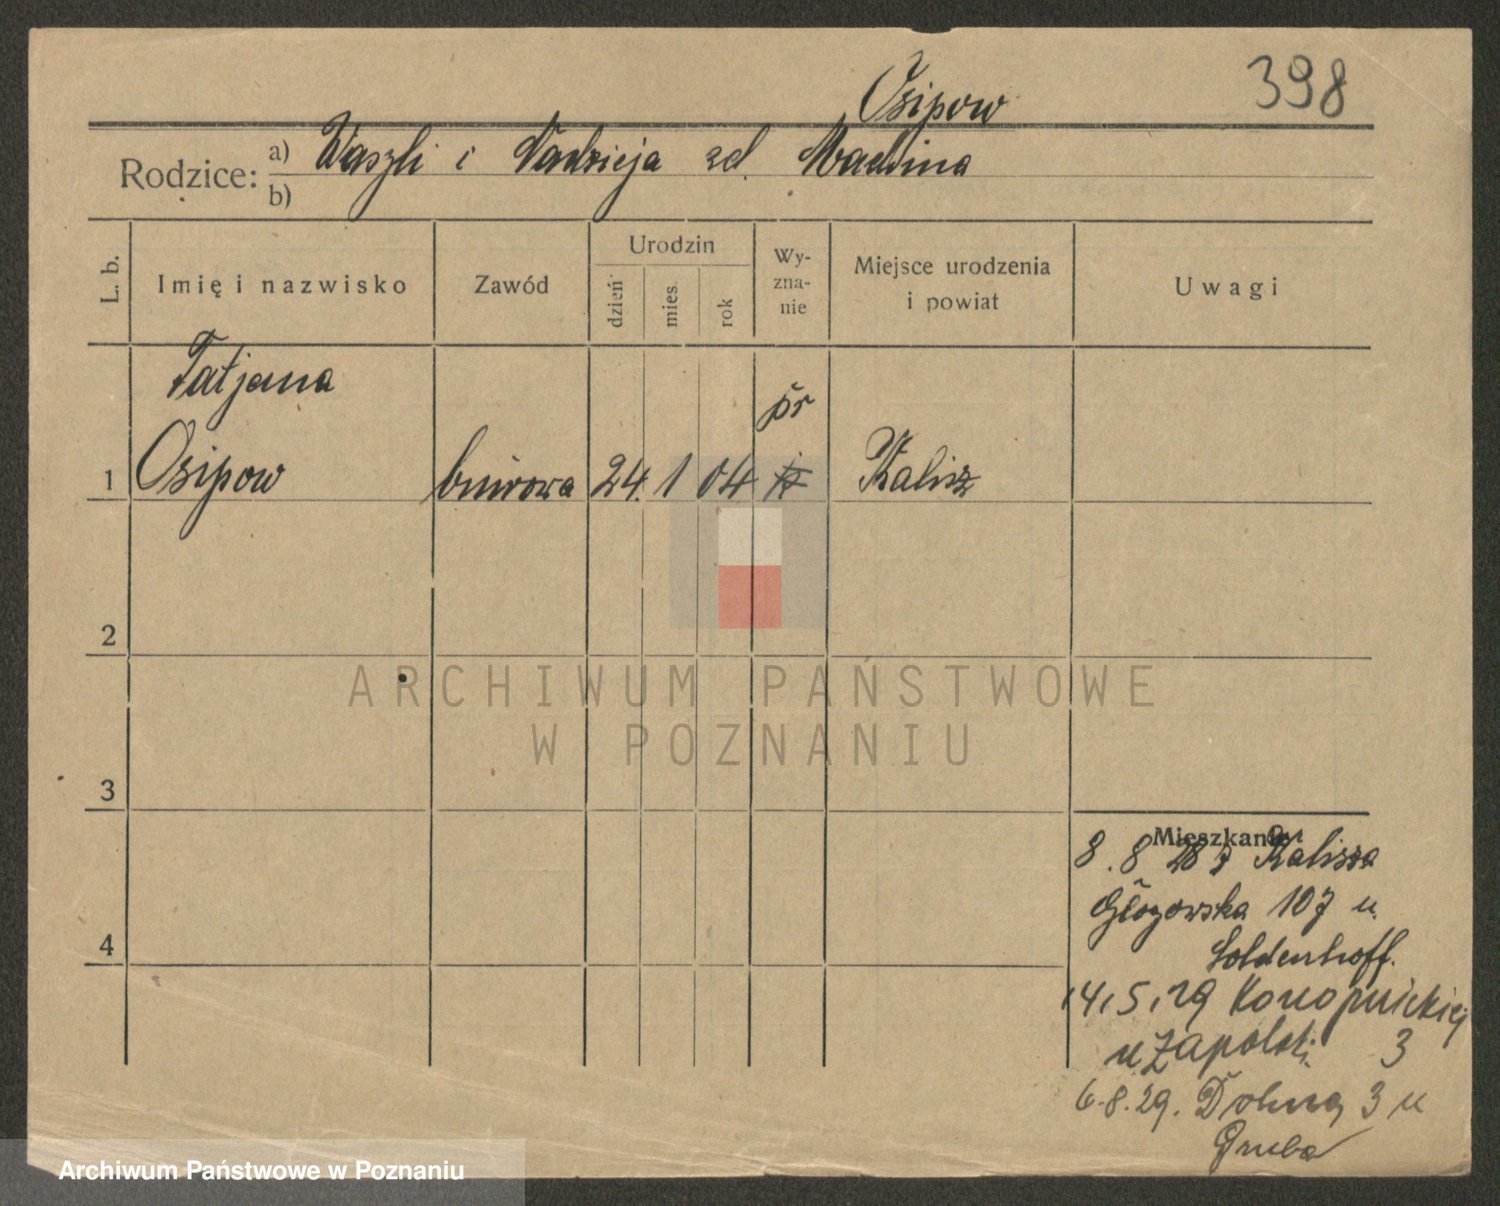 398
Osipow
Rodzice: a) Waszli i Nadzieja zd.
b)
L. b.
Imię i nazwisko
Zawód
Urodzin
dzień
mies.
rok
Wy-
zna-
nie
Miejsce urodzenia
i powiat
Uwagi
Tatjana
pr
1 Osipow biurowa 24. 1 04 Kalisz
2
3
4
ARCHIWUM PAŃSTWOWE
W POZNANIU
Mieszkanie
8. 8 28 z Kalisza
Głogowska 107 u.
Soldenhoff.
14.5.29 Konopnickiej
u Zapolski 3
6.8.29. Dolna 3 u
Gruba
Archiwum Państwowe w Poznaniu